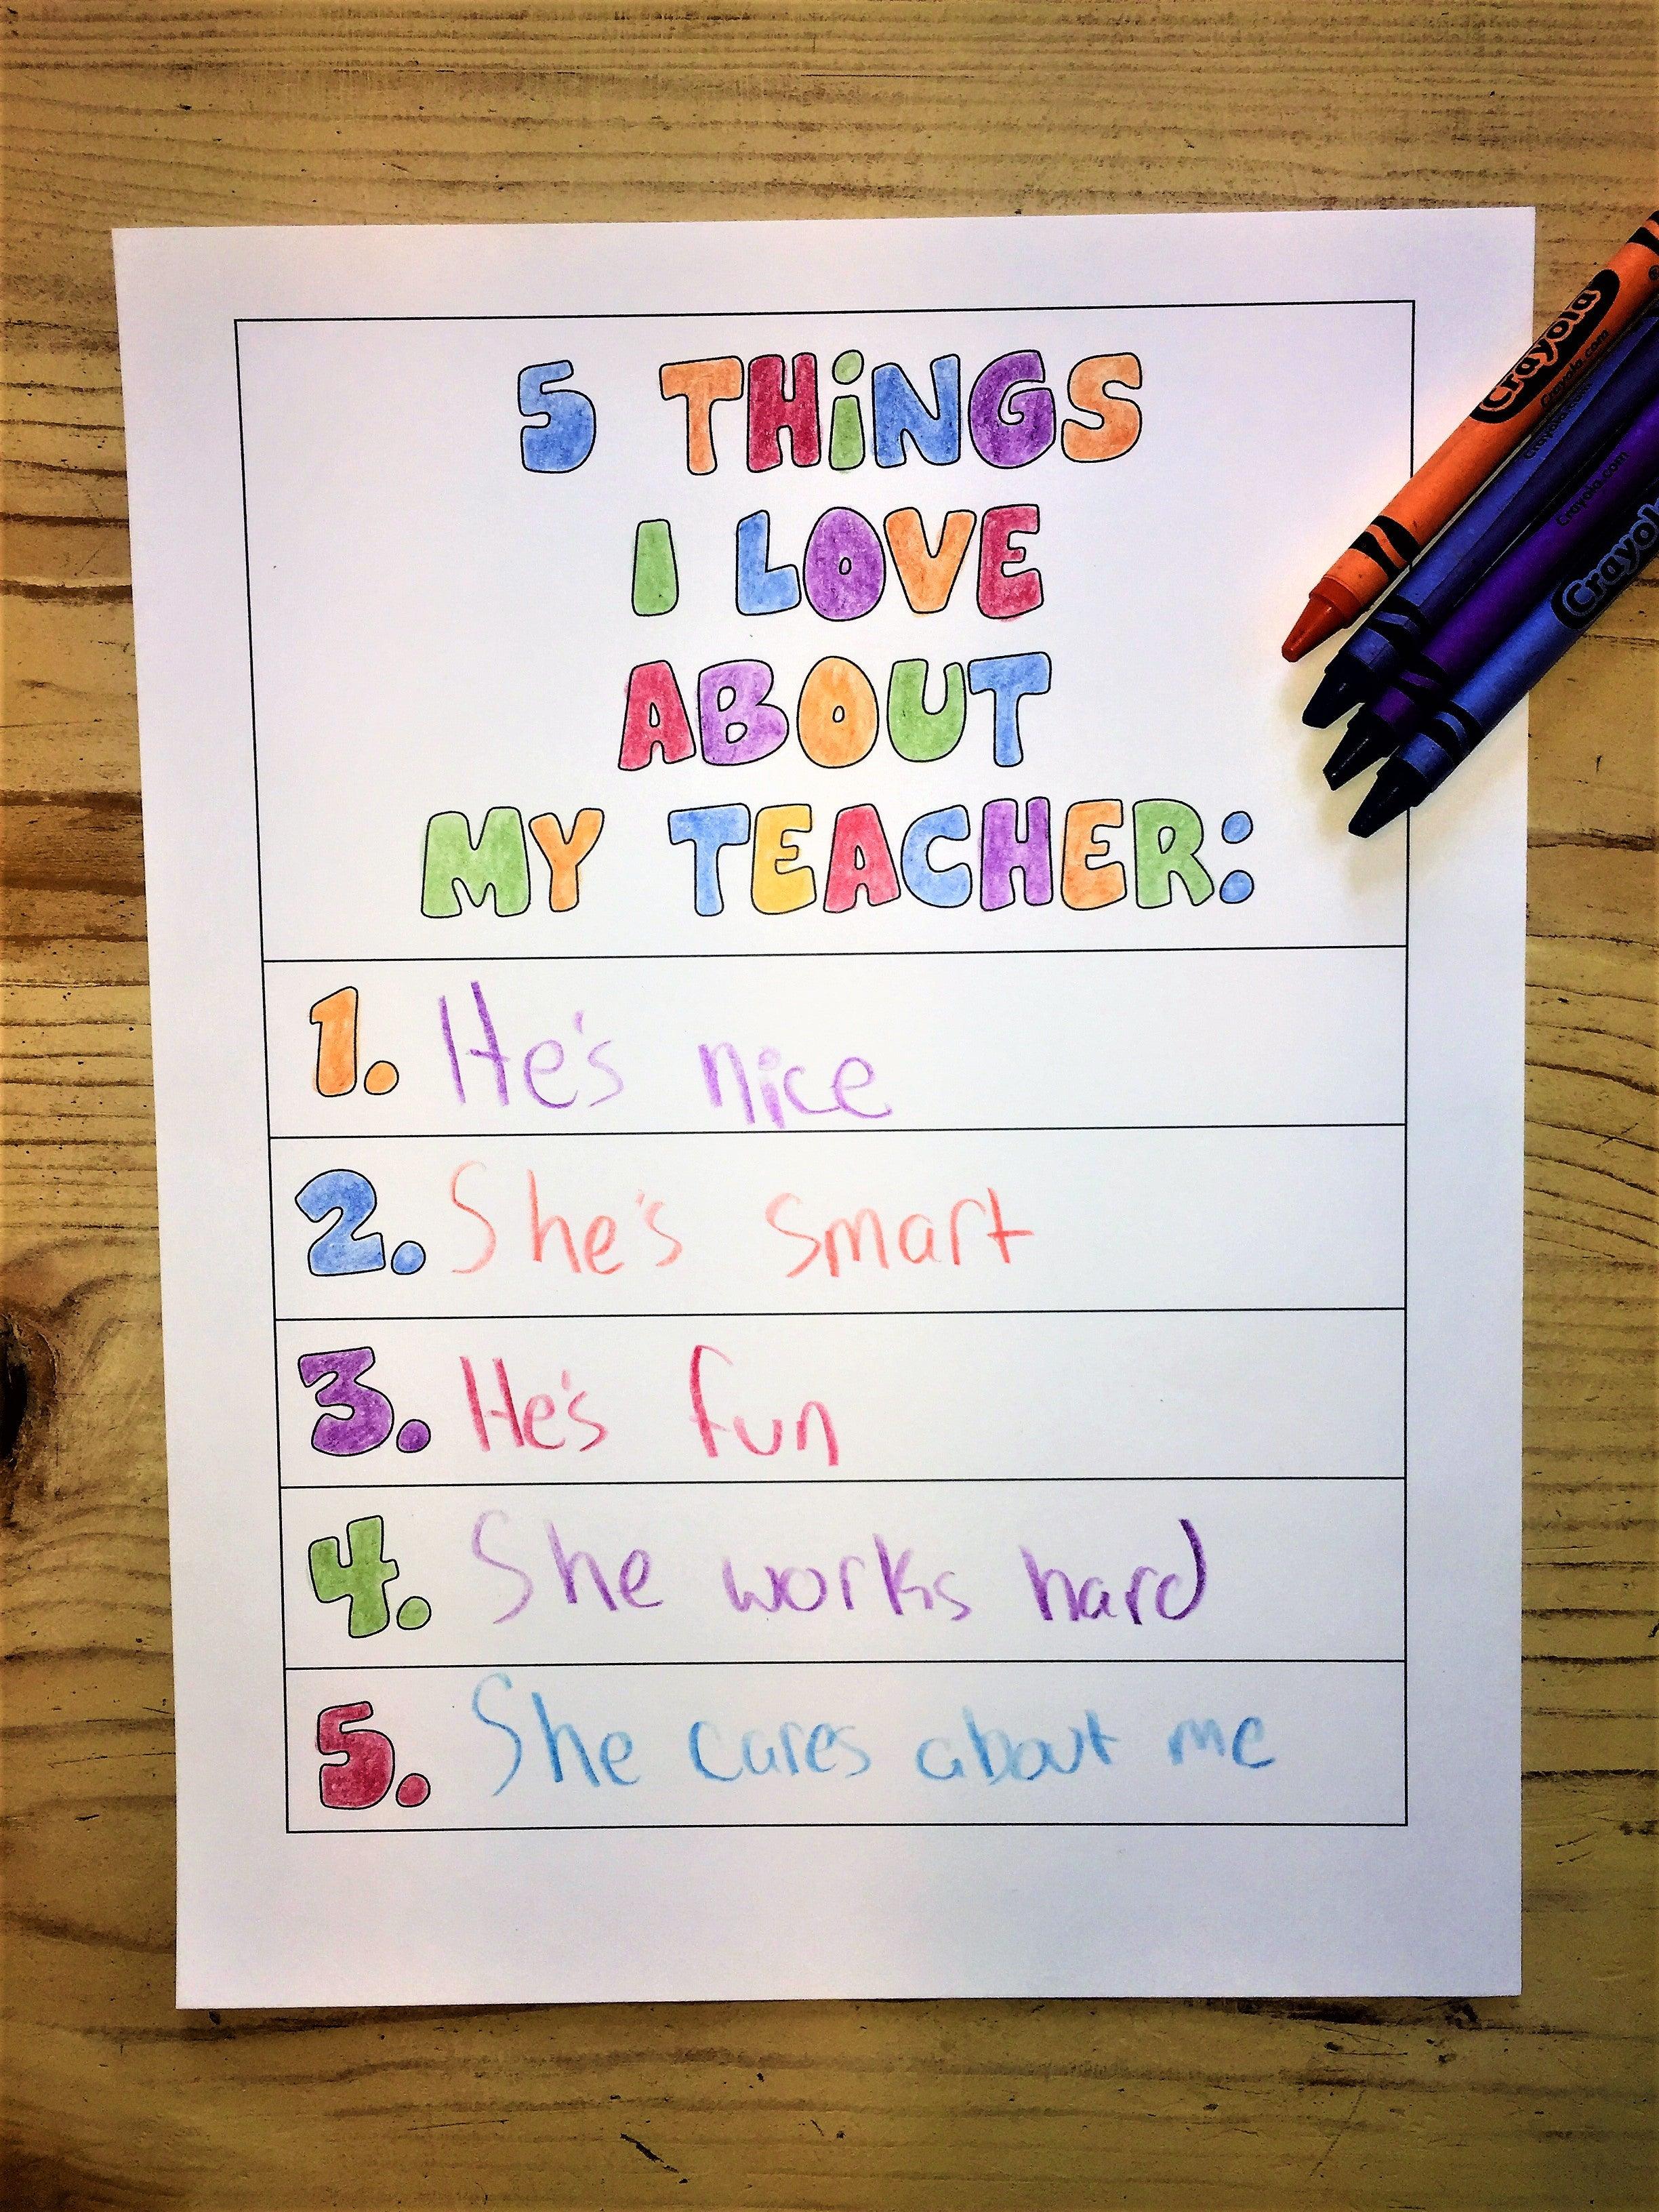 5 THiNGS
I LOVE
ABOUT
MY TEACHER:
1. He's nice
2. She's smart
3. He's fun
4. She works hard
5. She cares about me
Crayola
Crayola.com
Crayola.com
Crayola.com
Crayola